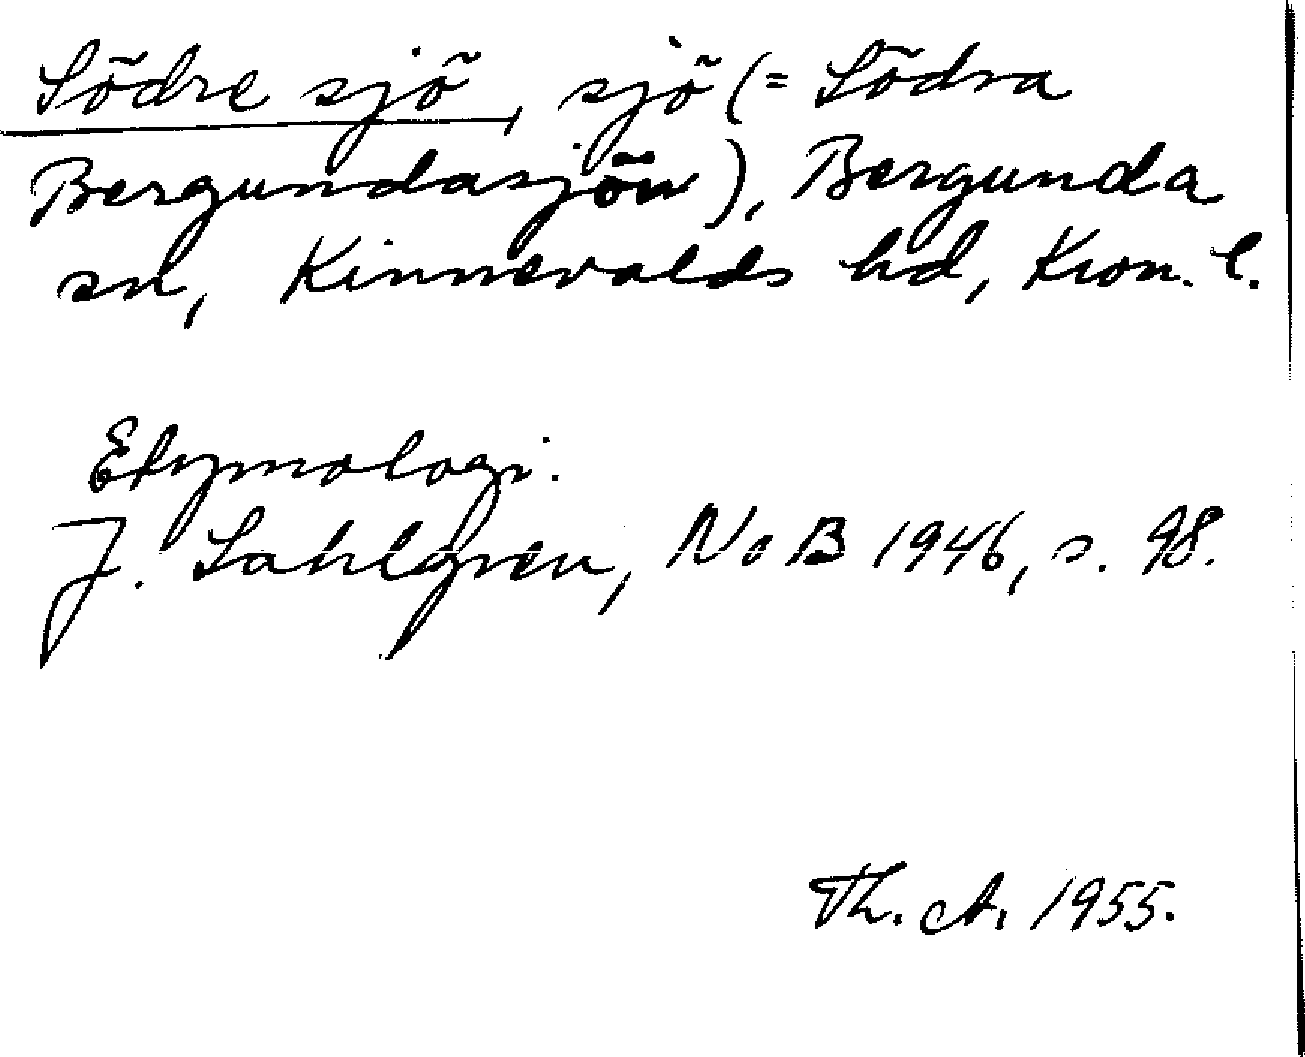 Södre sjö, sjö (= Södra
Bergundasjön), Bergunda
sn, Kinnevalds hd, Kron. l.
Etymologi.
J. Sahlgren, NoB 1946, s. 98.
Th. A. 1955.